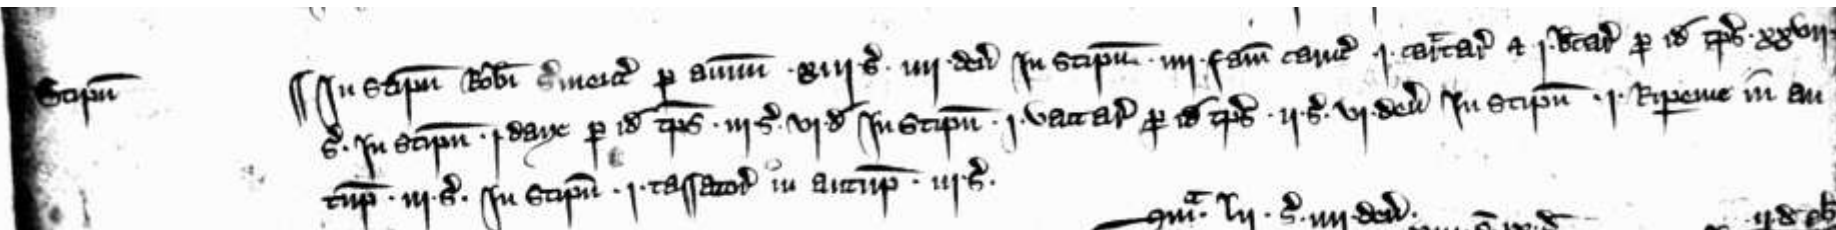 Stipn̄
In stipn̄ Robī s̄vient̄ p annū · xiij · s̄ · iiij · den̄ In stipn̄ · iiij · fam̄ caruc̄ · j · carectar̄ & j · b̄car̄ p id̄ tp̄s · xxvij ·
s̄ · In stipn̄ · j · daye p id̄ tp̄s · iij · s̄ · vj · d̄ In stipn̄ · j · vaccar̄ p id̄ tp̄s · ij · s̄ · vj · den̄ In stipn̄ · j · Ripreue in au
tūp · iij · s̄ · In stipn̄ · j · tassator̄ in autūp · iij · s̄ ·
Sm̄ᵃ · lij · s̄ · iiij · den̄ ·